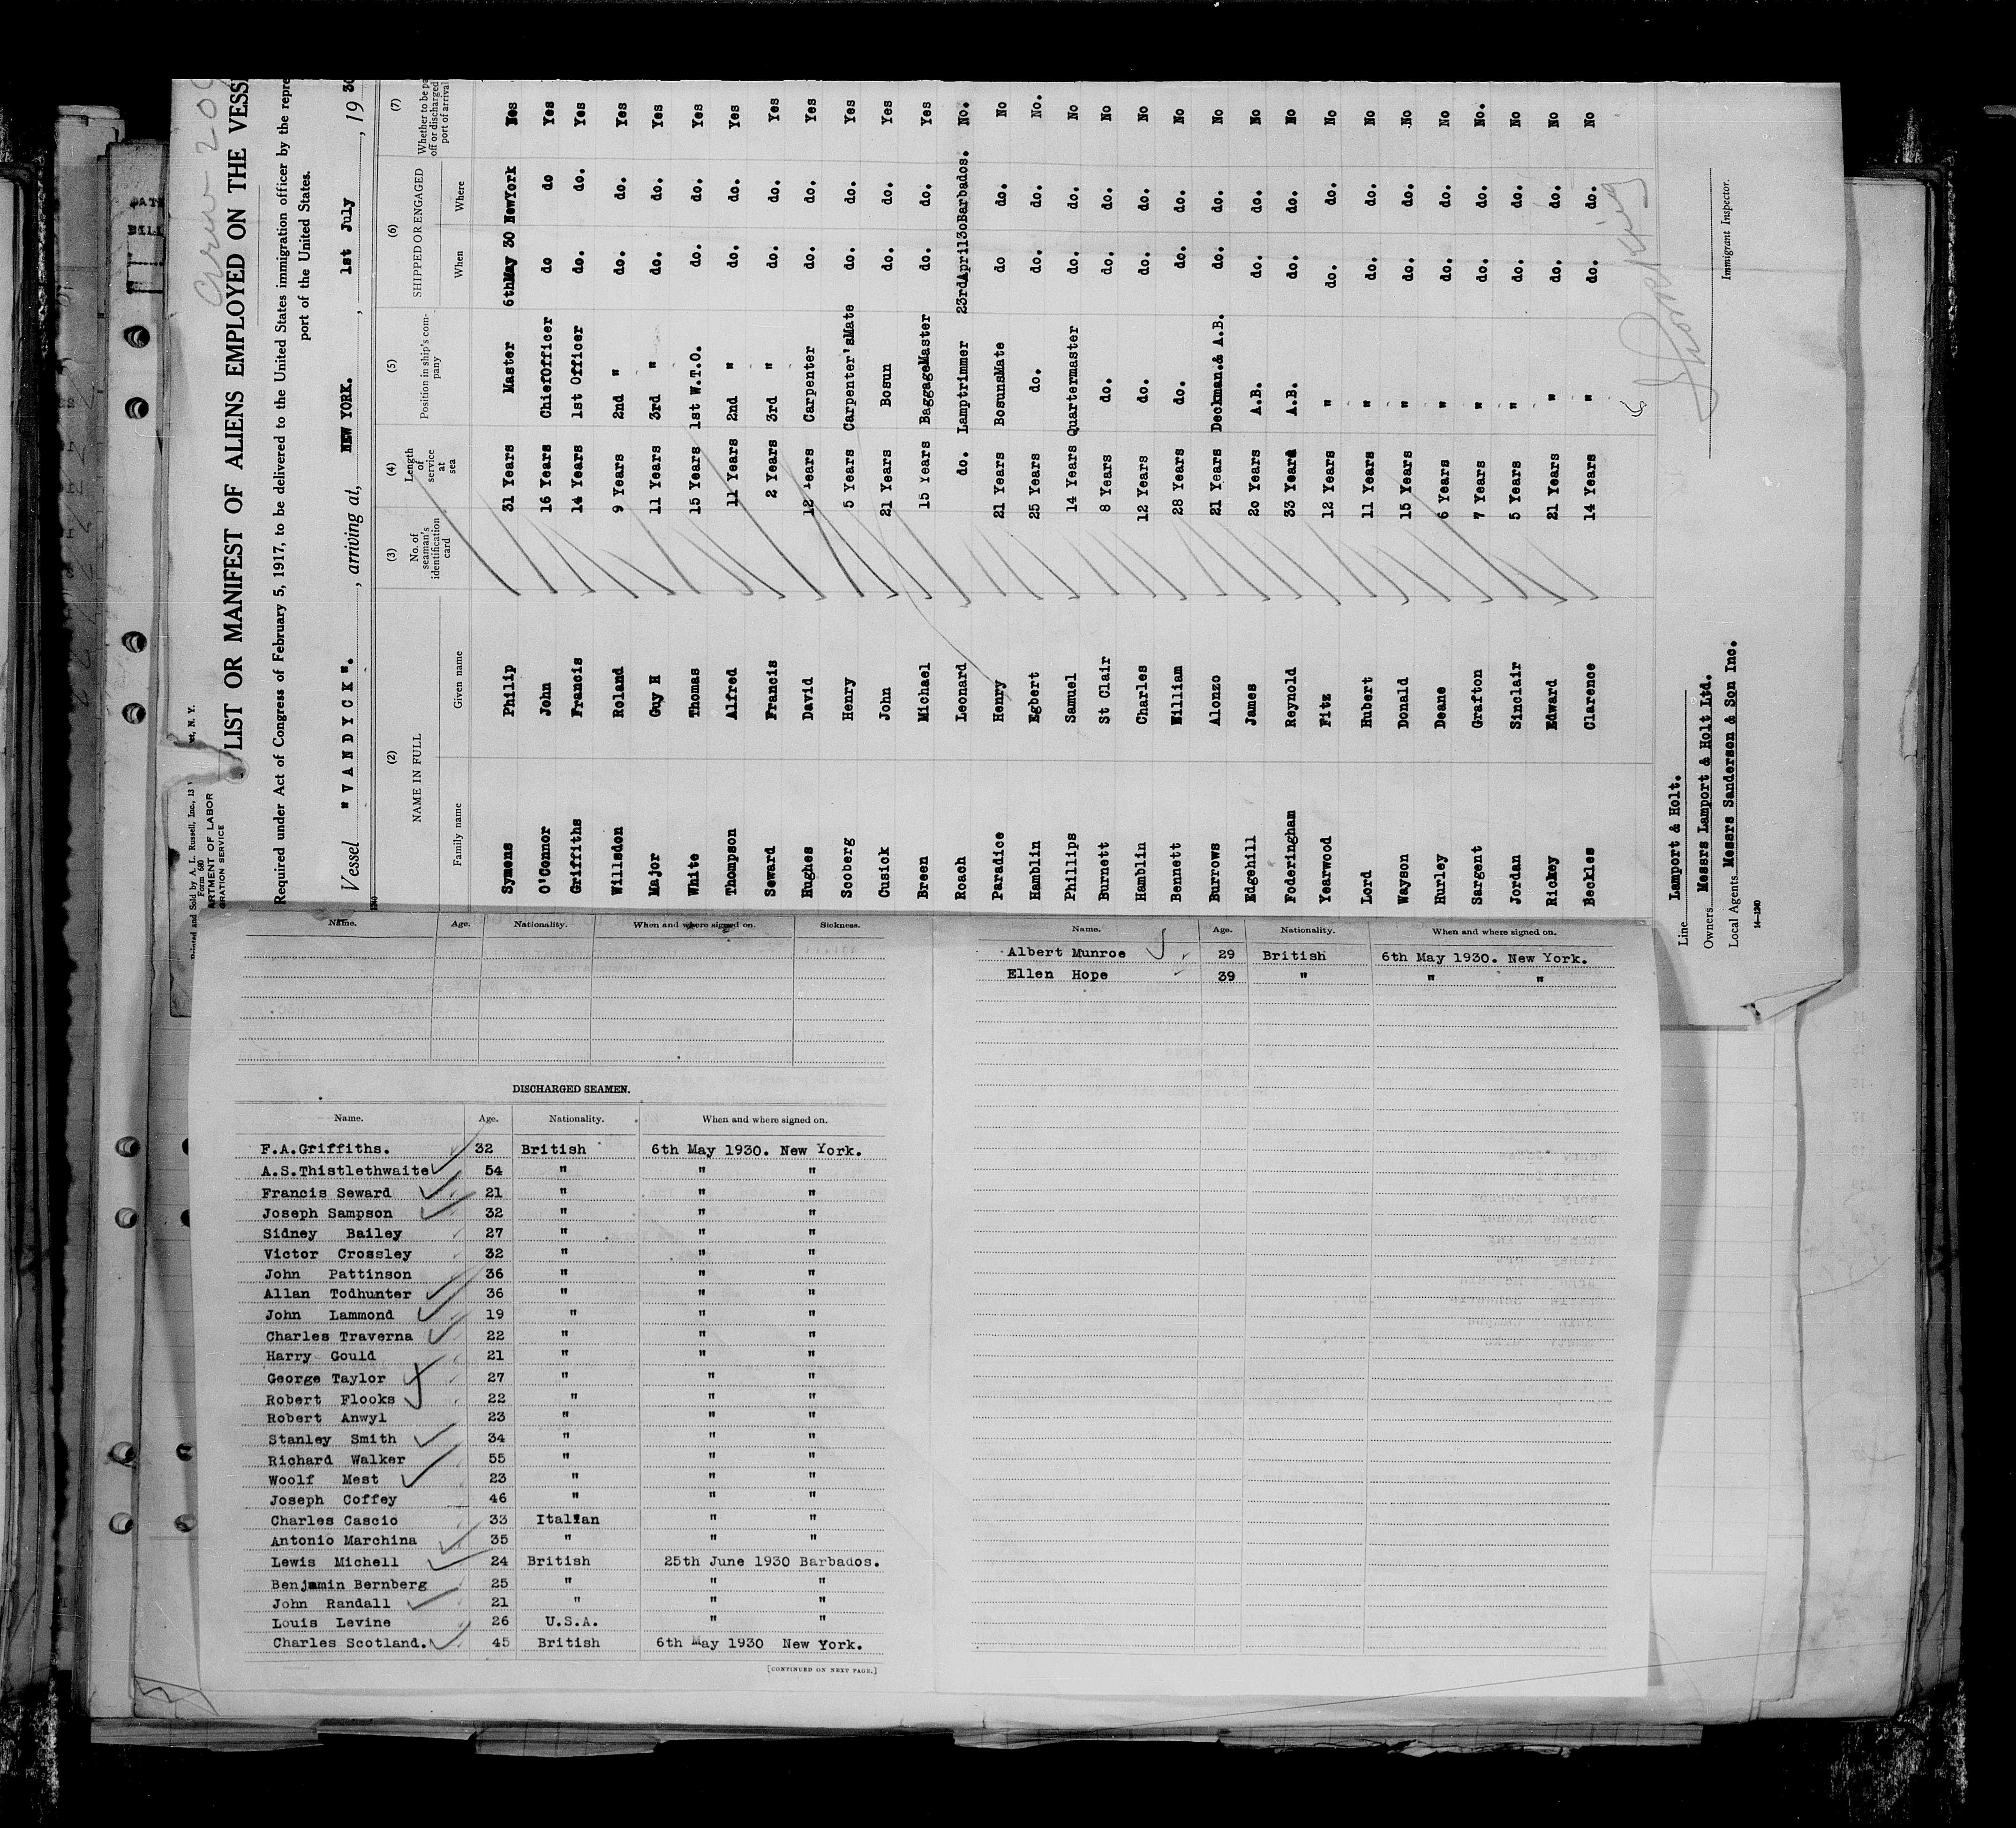 Crew 20
Printed and Sold by A. L. Russell, Inc., 13
et, N. Y.
Form 680
ARTMENT OF LABOR
GRATION SERVICE
LIST OR MANIFEST OF ALIENS EMPLOYED ON THE VESS
Required under Act of Congress of February 5, 1917, to be delivered to the United States immigration officer by the repre
port of the United States.
Vessel "VANDYCK"., arriving at, NEW YORK., 1st July, 19 30
(2) (3) (4) (5) (6) (7)
NAME IN FULL No. of seaman's identification card Length of service at sea Position in ship's com- pany SHIPPED OR ENGAGED Whether to be pa off or discharged port of arrival
Family name Given name When Where
Symens Philip 31 Years Master 6thMay 30 NewYork
O'Connor John 16 Years ChiefOfficer do do Yes
Griffiths Francis 14 Years 1st Officer do. do. Yes
Willsdon Roland 9 Years 2nd " do. do. Yes
Major Guy H 11 Years 3rd " do. do. Yes
White Thomas 15 Years 1st W.T.O. do. do. Yes
Thompson Alfred 11 Years 2nd " do. do. Yes
Seward Francis 2 Years 3rd " do. do. Yes
Hughes David 12 ears Carpenter do. do. Yes
Scoberg Henry 5 Years Carpenter'sMate do. do. Yes
Cusick John 21 Years Bosun do. do. Yes
Breen Michael 15 Years BaggageMaster do. do. Yes
Roach Leonard do. Lamptrimmer 23rdApril30Barbados. No.
Paradice Henry 21 Years BosunsMate do do. No
Hamblin Egbert 25 Years do. do. do. No.
Phillips Samuel 14 Years Quartermaster do. do. No
Burnett St Clair 8 Years do. do. do. No
Hamblin Charles 12 Years do. do. do. No
Bennett William 28 Years do. do. do. No
Burrows Alonzo 21 Years Deckman.& A.B. do. do. No
Edgehill James 20 Years A.B. do. do. No
Foderingham Reynold 33 Years A.B. do. do. No
Yearwood Fitz 12 Years " do. do. No
Lord Hubert 11 Years " do. do. No
Wayson Donald 15 Years " do. do. No
Hurley Deane 6 Years " do. do. No
Sargent Grafton 7 Years " do. do. No.
Jordan Sinclair 5 Years " do. do. No
Rickey Edward 21 Years " do. do. No
Beckles Clarence 14 Years " do. do. No
Line Lampport & Holt.
Owners Messrs Lamport & Holt Ltd.
Local Agents Messrs Sanderson & Son Inc.
14-1240
Immigrant Inspector.
Name. Age. Nationality. When and where signed on. Sickness.
DISCHARGED SEAMEN.
Name. Age. Nationality. When and where signed on.
F.A.Griffiths. 32 British 6th May 1930. New York.
A.S.Thistlethwaite 54 " " "
Francis Seward 21 " " "
Joseph Sampson 32 " " "
Sidney Bailey 27 " " "
Victor Crossley 32 " " "
John Pattinson 36 " " "
Allan Todhunter 36 " " "
John Lammond 19 " " "
Charles Traverna 22 " " "
Harry Gould 21 " " "
George Taylor 27 " " "
Robert Flooks 22 " " "
Robert Anwyl 23 " " "
Stanley Smith 34 " " "
Richard Walker 55 " " "
Woolf Mest 23 " " "
Joseph Coffey 46 " " "
Charles Cascio 33 Italian " "
Antonio Marchina 35 " " "
Lewis Michell 24 British 25th June 1930 Barbados.
Benjamin Bernberg 25 " " "
John Randall 21 " " "
Louis Levine 26 U.S.A. " "
Charles Scotland. 45 British 6th May 1930 New York.
[CONTINUED ON NEXT PAGE.]
Name. Age. Nationality. When and where signed on.
Albert Munroe 29 British 6th May 1930. New York.
Ellen Hope 39 " " "